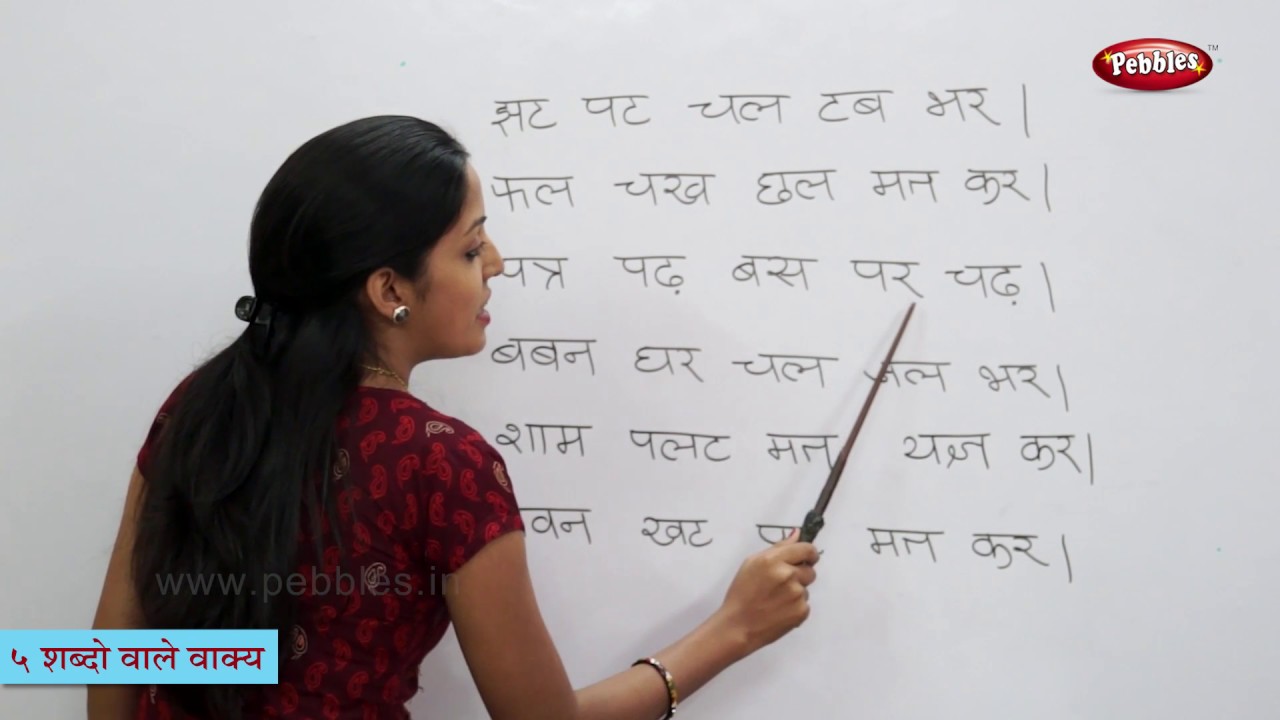 Pebbles™
झट पट चल टब भर।
फल चख छल मत कर।
पत्र पढ़ बस पर चढ़।
बबन घर चल जल भर।
शाम पलट मत यज्ञ कर।
खट मत कर।
www.pebbles.in
५ शब्दो वाले वाक्य